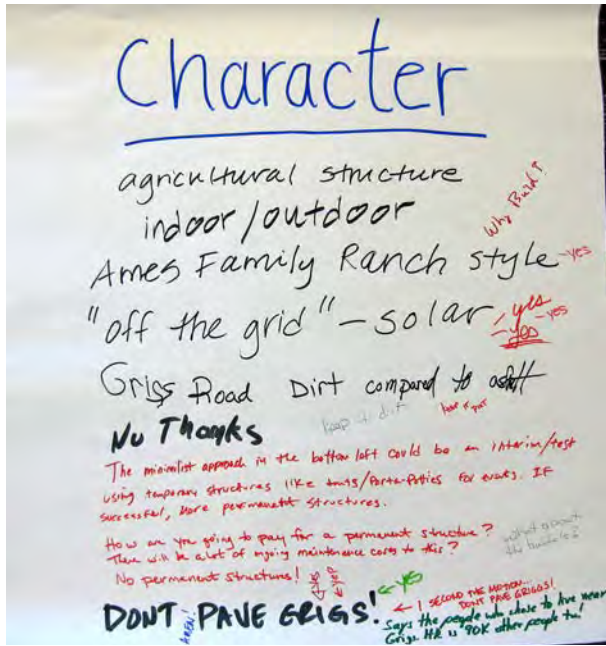 Character
agricultural structure
indoor/outdoor
Why Build?
Ames Family Ranch style -yes
"off the grid" - solar - yes - yes
- yes
Grigs Road Dirt compared to
keep it dirt
keep it dirt
No Thanks
The minimilist approach in the bottom left could be an interim/test
using temporary structures like tents/Porta-Potties for events. If
successful, more permanent structures.
How are you going to pay for a permanent structure?
There will be a lot of ongoing maintenance costs to this?
what about
the
No permanent structures! ← yes ← yep
DONT PAVE GRIGS! ← YES
AMEN!
← I SECOND THE MOTION...
DONT PAVE GRIGGS!
Says the people who chose to live near
Grigs. HR is 90K other people too!